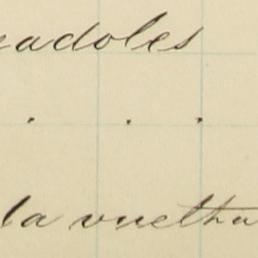 nadoles
. . .
la vuelta